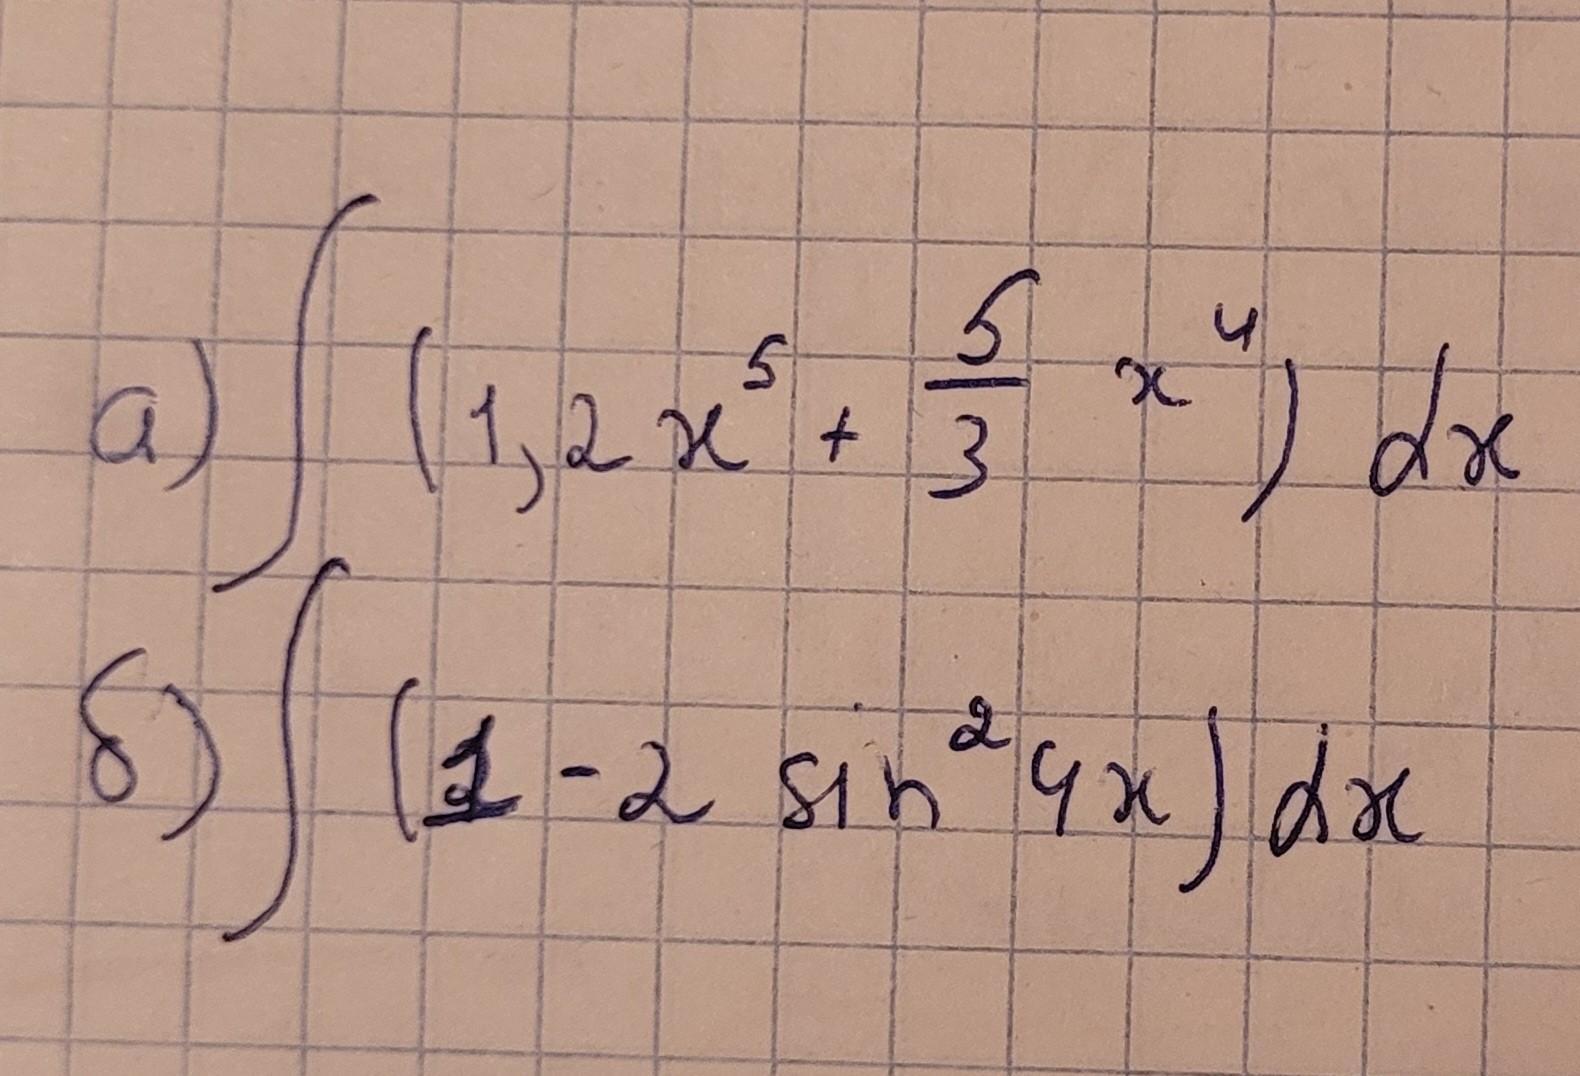 а) ∫ (1,2x⁵ + 5/3 x⁴) dx
б) ∫ (1 - 2 sin² 4x) dx